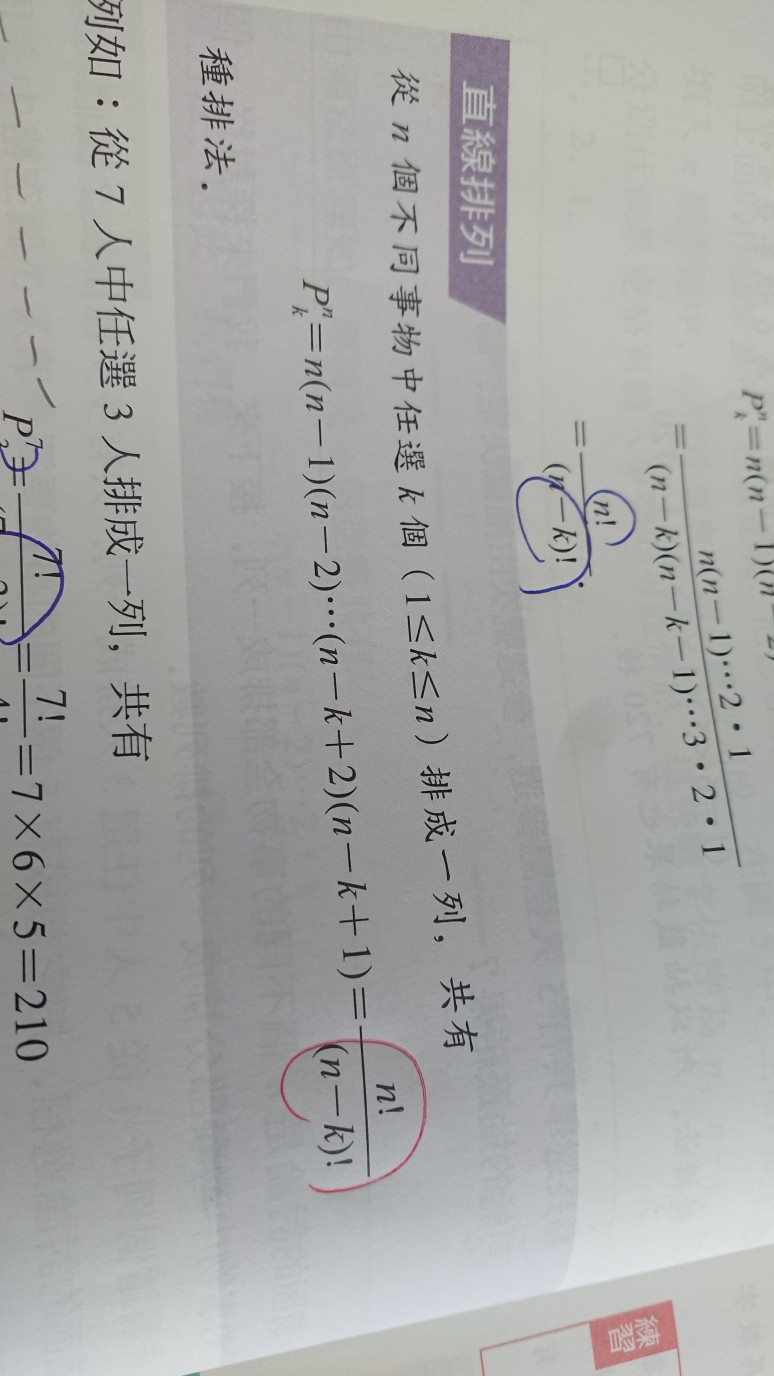 Pⁿₖ=n(n−1)(n−2)
=n(n−1)⋯2・1/(n−k)(n−k−1)⋯3・2・1
=n!/(n−k)!.
直線排列
從 n 個不同事物中任選 k 個（1≤k≤n）排成一列，共有
Pⁿₖ=n(n−1)(n−2)⋯(n−k+2)(n−k+1)=n!/(n−k)!
種排法．
例如：從 7 人中任選 3 人排成一列，共有
=7!/4!=7×6×5=210
練習